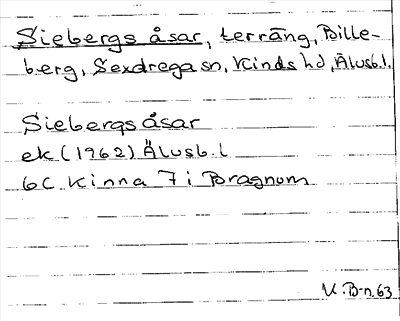 Siebergs åsar, terräng, Bille-
berg, Sexdrega sn, Kinds hd, Älvsb.l.
Siebergsåsar
ek (1962) Älvsb.l
6C Kinna 7i Bragnum
K.B-n.63